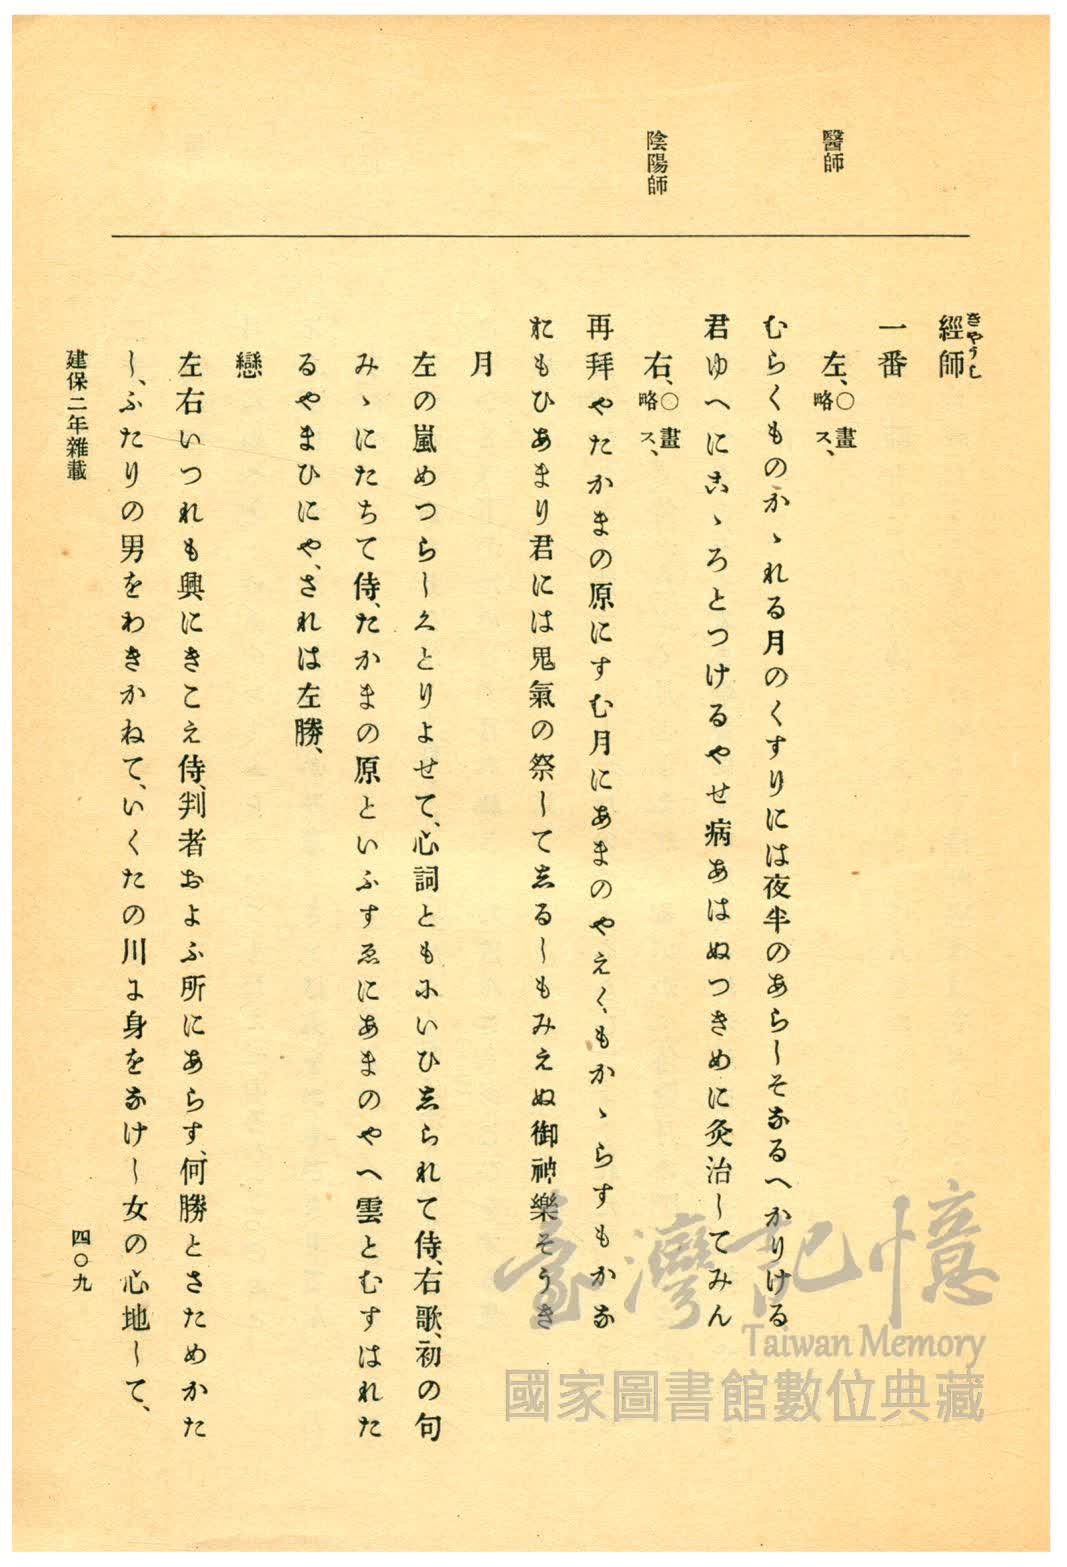 醫師
陰陽師
經師
きやうし
一番
左、○畫略ス、
むらくものかゝれる月のくすりには夜半のあらしそなるへかりける
君ゆへにこゝろとつけるやせ病あはぬつきめに灸治してみん
右、○畫略ス、
再拜やたかまの原にすむ月にあまのやえくもかゝらすもかな
おにもひあまり君には鬼氣の祭してしるしもみえぬ御神樂そうき
月
左の嵐めつらしくとりよせて、心詞ともにいひしられて侍、右歌、初の句
みゝにたちて侍、たかまの原といふすゑにあまのやへ雲とむすはれた
るやまひにや、されは左勝、
戀
左右いつれも興にきこえ侍、判者およふ所にあらす、何勝とさためかた
し、ふたりの男をわきかねて、いくたの川に身をなけし女の心地して、
建保二年雜載
四〇九
臺灣記憶
Taiwan Memory
國家圖書館數位典藏